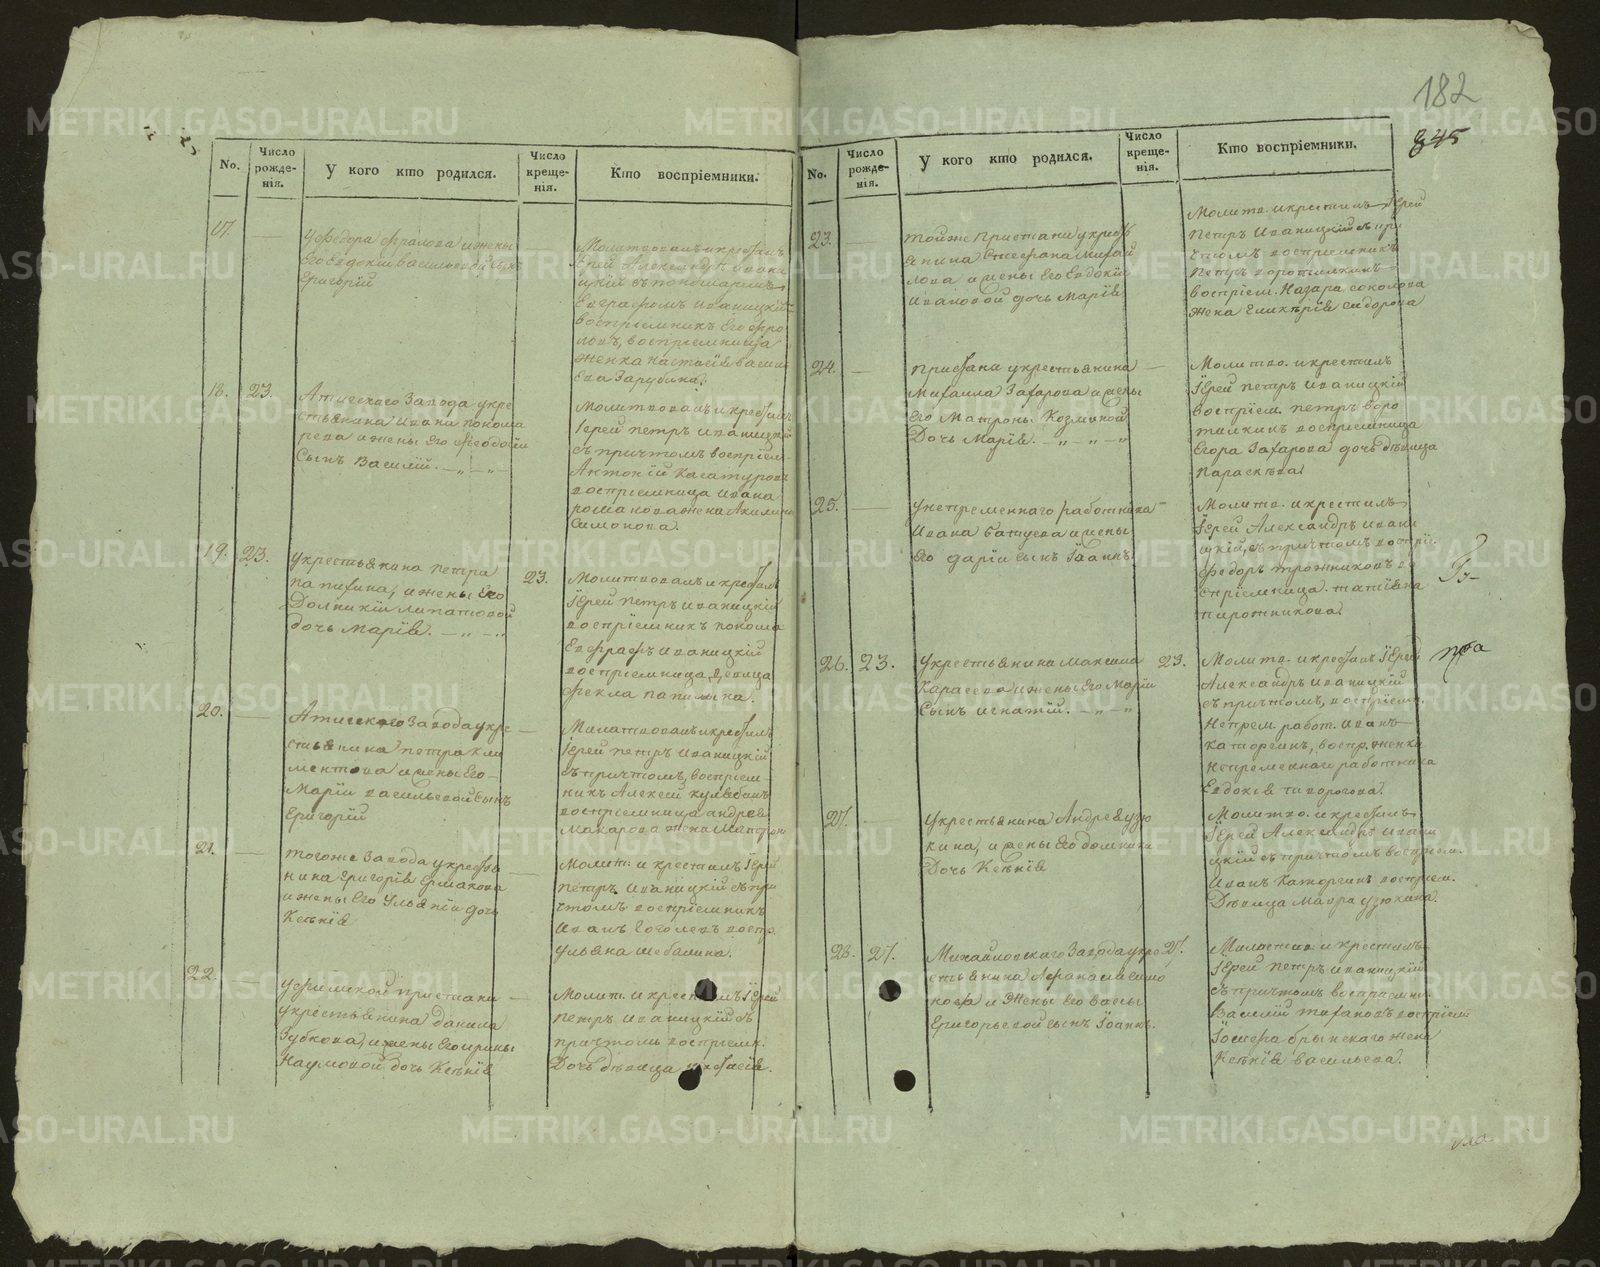 182
845
No.
Число рожде- нія.
У кого кто родился.
Число креще- нія.
Кто воспріемники.
17.
У Федора Фралова и жены
Его Евдокіи Васильевой сынъ
Григорій
Молитвовалъ и крестилъ
Іерей Александръ Ивани
цкій съ пономаремъ
Евграфомъ Иваницкій
воспріемникъ Его Фро
ловъ, воспріемница
женка Настасія Васил
Ева Зарубина.
18. 23.
Атигскаго Завода у кре
стьянина Ивана Понома
рева и жены Его Феодосіи
Сынъ Василій.
Молитвовалъ и крестилъ
Іерей Петръ Иваницкій
съ причтомъ воспріем
Антоній Касатуровъ
воспріемница Ивана
романова жена Акилина
Симонова.
19. 23.
У крестьянина Петра
Папихина, и жены Его
Долникіи Липатовой
дочь Марія.
23.
Молитвовалъ и крестилъ
Іерей Петръ Иваницкій
воспріемникъ понома
Евграфъ Иваницкій
воспріемница девица
Фекла
20.
Атигскаго Завода у кре
стьянина Петра Кли
ментова и жены Его
Маріи Васильевой сынъ
Григорій
Молитвовалъ и крестилъ
Іерей Петръ Иваницкій
съ причтомъ, воспріем
никъ Алексей
воспріемница Андрея
Макарова жена Матрон
21.
Того же Завода у кресть
нина Григорія Ермакова
и жены Его Ульянiи дочь
Ксѣнія
Молит. и крестилъ Іерей
Петръ Иваницкій съ при
чтомъ воспріемникъ
Иванъ Гоголевъ воспр.
Ульяна Шебалина.
22.
Уфимской пристани
у крестьянина Данила
Зубкова, и жены Его Ирины
Наумовой дочь Ксѣнія
Молит. и крестилъ Іерей
Петръ Иваницкій съ
причтомъ воспріемн.
Дочь дѣвица
No.
Число рожде- нія.
У кого кто родился.
Число креще- нія.
Кто воспріемники.
23.
Той же Пристани у кресть
янина Стефана Михай
лова и жены Его Евдокіи
Ивановой дочь Марія
Молитв. и крестилъ Іерей
Петръ Иваницкій съ при
чтомъ воспріемникъ
Петръ Воротилкинъ
воспріем. Назара Соколова
жена Гликѣрія Сидорова
24.
Пристана у крестьянина
Михаила Захарова и жены
Его Матроны Козминой
Дочь Марія.
Молитво. и крестилъ
Іерей Петръ Иваницкій
воспріем. Петръ Воро
тилкинъ воспріемница
Егора Захарова дочь дѣвица
Параскѣва.
25.
У непременнаго работника
Ивана Батуева и жены
Его Даріи сынъ Іоаннъ.
Молитв. и крестилъ
Іерей Александръ Ивани
цкій, съ причтомъ воспріе.
Федоръ Пирожниковъ во
спріемница. Татіяна
Пирожникова.
26. 23.
У крестьянина Максима
Карасева и жены Его Маріи
Сынъ Игнатій.
23.
Молитв. и крестилъ Іерей
Александръ Иваницкій
съ причтомъ, воспріем.
Непрем работ. Иванъ
Каторгинъ, воспр. женка
непременнаго работника
Евдокія Тиворогова.
27.
У крестьянина Андрея Узю
кина, и жены Его Домники
Дочь Ксѣнія
Молитво. и крестилъ
Іерей Александръ Ивани
цкій съ причтомъ воспріем.
Иванъ Каторгинъ воспріем.
Дѣвица Мавра Узюкина.
28. 27.
Михайловскаго Завода у кре
стьянина Афанасія Симо
нова и Жены Его Вассы
Григорьевой сынъ Іоаннъ.
27.
Молитво. и крестилъ
Іерей Петръ Иваницкій
съ причтомъ воспріемн.
Василій Тихановъ воспріем
Іосифа Брынскаго жена
Ксѣнія Васильева.
METRIKI.GASO-URAL.RU